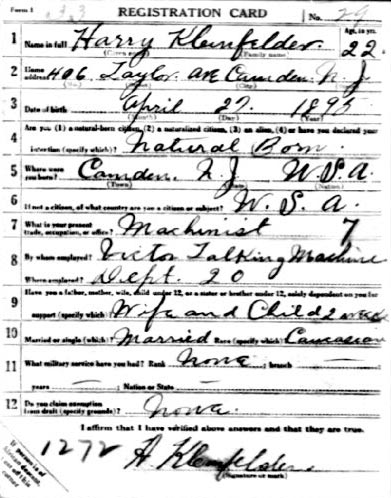 Form 1 333 REGISTRATION CARD No. 29
1 Name in full Harry Kleinfelder. Age, in yrs. 22.
(Given name) (Family name)
2 Home address 406 Taylor Ave Camden. N. J
(No.) (Street) (City) (State)
3 Date of birth April 27. 1895
(Month) (Day) (Year)
4 Are you (1) a natural-born citizen, (2) a naturalized citizen, (3) an alien, (4) or have you declared your
intention (specify which)? Natural Born
5 Where were you born? Camden. N. J U.S.A.
(Town) (State) (Nation)
6 If not a citizen, of what country are you a citizen or subject? U. S. A.
7 What is your present trade, occupation, or office? Machinist 7
8 By whom employed? Victor Talking Machine
Where employed? Dept. 20
9 Have you a father, mother, wife, child under 12, or a sister or brother under 12, solely dependent on you for
support (specify which)? Wife and Child 2 weeks
10 Married or single (which)? Married Race (specify which)? Caucasian
11 What military service have you had? Rank None; branch —
years —; Nation or State —
12 Do you claim exemption from draft (specify grounds)? None.
I affirm that I have verified above answers and that they are true.
1272 H. Kleinfelder
(Signature or mark)
If person is of African descent, tear off this corner